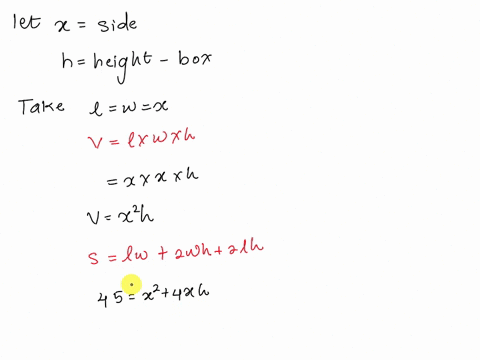 let x = side
h = height - box
Take l = w = x
V = l x w x h
= x x x x h
V = x²h
S = lw + 2wh + 2lh
45 = x² + 4xh